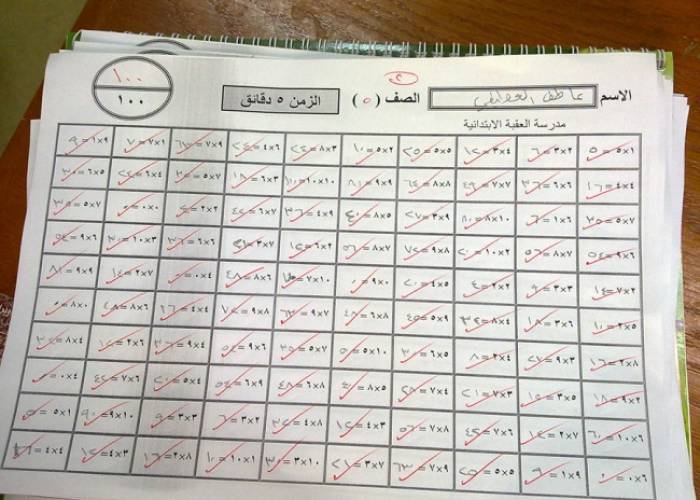 ١٠٠
١٠٠
٢
الاسم عاطف العوليقي الصف (٥) الزمن ٥ دقائق
مدرسة العقبة الابتدائية
١×٥ = ٥ ٢×٣ = ٦ ٤×٣ = ١٢ ٥×٥ = ٢٥ ٢×٥ = ١٠ ٨×٣ = ٢٤ ٦×٤ = ٢٤ ٩×٧ = ٦٣ ١×٧ = ٧ ٩×١ = ٩
٤×٤ = ١٦ ٦×٦ = ٣٦ ٧×٧ = ٤٩ ٨×٨ = ٦٤ ٩×٩ = ٨١ ١٠×١٠ = ١٠٠ ٣×٦ = ١٨ ٧×٥ = ٣٥ ٤×٦ = ٢٤ ٥×٦ = ٣٠
٧×٥ = ٣٥ ٦×١ = ٦ ١٠×٨ = ٨٠ ٩×٣ = ٢٧ ٥×٨ = ٤٠ ٩×٤ = ٣٦ ٧×٦ = ٤٢ ٢×٢ = ٤ ٥×٠ = ٠ ٧×٥ = ٣٥
٦×٩ = ٥٤ ٨×٧ = ٥٦ ٢×١٠ = ٢٠ ٨×٩ = ٧٢ ٧×٨ = ٥٦ ٢×٦ = ١٢ ٧×٣ = ٢١ ٦×٦ = ٣٦ ٣×١٠ = ٣٠ ٦×٩ = ٥٤
٢×٧ = ١٤ ٣×٣ = ٩ ٢×٢ = ٤ ٥×٤ = ٢٠ ٠×٩ = ٠ ١٠×٧ = ٧٠ ٦×٨ = ٤٨ ٤×٠ = ٠ ٧×٢ = ١٤ ٩×٩ = ٨١
٥×٢ = ١٠ ٦×٣ = ١٨ ٤×٨ = ٣٢ ٩×٥ = ٤٥ ٨×٦ = ٤٨ ٧×٩ = ٦٣ ٨×٩ = ٧٢ ٤×٤ = ١٦ ٦×٨ = ٤٨ ٠×٨ = ٠
٨×٢ = ١٦ ٣×٩ = ٢٧ ٢×٤ = ٨ ٦×٥ = ٣٠ ١٠×٥ = ٥٠ ٧×٥ = ٣٥ ٦×٩ = ٥٤ ٤×٩ = ٣٦ ٦×٢ = ١٢ ٤×٨ = ٣٢
٢×٩ = ١٨ ٥×٣ = ١٥ ٣×٧ = ٢١ ٤×٧ = ٢٨ ٥×٨ = ٤٠ ٦×٨ = ٤٨ ٩×٦ = ٥٤ ٤×٥ = ٢٠ ٦×٧ = ٤٢ ٤×٠ = ٠
٦×١٠ = ٦٠ ٧×٢ = ١٤ ٦×٧ = ٤٢ ٨×٧ = ٥٦ ٣×٤ = ١٢ ٨×٤ = ٣٢ ٢×٣ = ٦ ٣×٣ = ٩ ١٠×٩ = ٩٠ ١×٥ = ٥
٦×٠ = ٠ ٩×١ = ٩ ٥×٥ = ٢٥ ٩×٧ = ٦٣ ٧×٣ = ٢١ ١٠×٣ = ٣٠ ١×١٠ = ١٠ ٨×٢ = ١٦ ٣×٤ = ١٢ ٤×٤ = ١٦